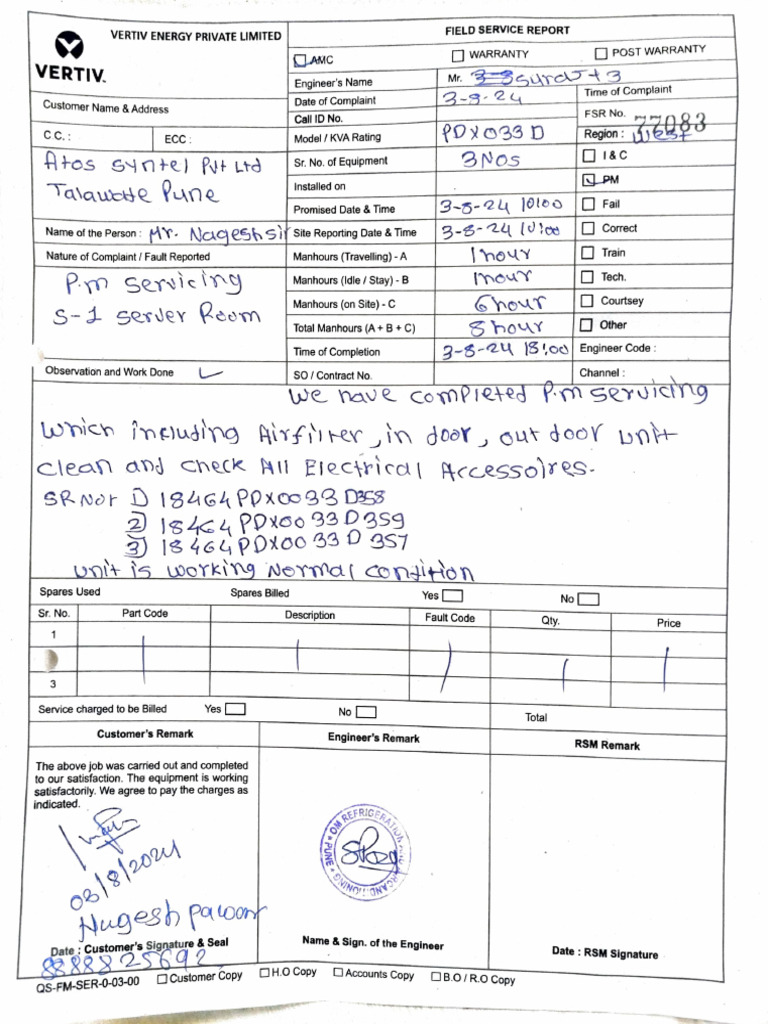 VERTIV ENERGY PRIVATE LIMITED
FIELD SERVICE REPORT
VERTIV.
AMC
WARRANTY
POST WARRANTY
Engineer's Name
Mr.
Time of Complaint
Customer Name & Address
Date of Complaint
3-8-24
Call ID No.
FSR No. 77083
C.C. :
ECC :
Model / KVA Rating
PDX033D
Region : West
Atos Syntel Pvt Ltd
Sr. No. of Equipment
3 Nos
I & C
Talawade Pune
Installed on
PM
Promised Date & Time
3-8-24 10:00
Fail
Name of the Person : Mr. Nagesh sir
Site Reporting Date & Time
3-8-24 10:00
Correct
Nature of Complaint / Fault Reported
Manhours (Travelling) - A
1 hour
Train
P.m servicing
Manhours (Idle / Stay) - B
1 hour
Tech.
S-1 server Room
Manhours (on Site) - C
6 hour
Courtsey
Total Manhours (A + B + C)
8 hour
Other
Time of Completion
3-8-24 18:00
Engineer Code :
Observation and Work Done
SO / Contract No.
Channel :
We have completed P.m servicing
which including Airfilter, in door, out door unit
clean and check All Electrical Accessoires.
SR Nor 1) 18464PDX0033D358
2) 18464PDX0033D359
3) 18464PDX0033D357
unit is working Normal condition
Spares Used
Spares Billed
Yes
No
Sr. No.
Part Code
Description
Fault Code
Qty.
Price
1
3
Service charged to be Billed
Yes
No
Total
Customer's Remark
Engineer's Remark
RSM Remark
The above job was carried out and completed
to our satisfaction. The equipment is working
satisfactorily. We agree to pay the charges as
indicated.
OM REFRIGERATION
PUNE
03/8/2024
Nagesh pawar
Date : Customer's Signature & Seal
Name & Sign. of the Engineer
Date : RSM Signature
8888825692
QS-FM-SER-0-03-00
Customer Copy
H.O Copy
Accounts Copy
B.O / R.O Copy